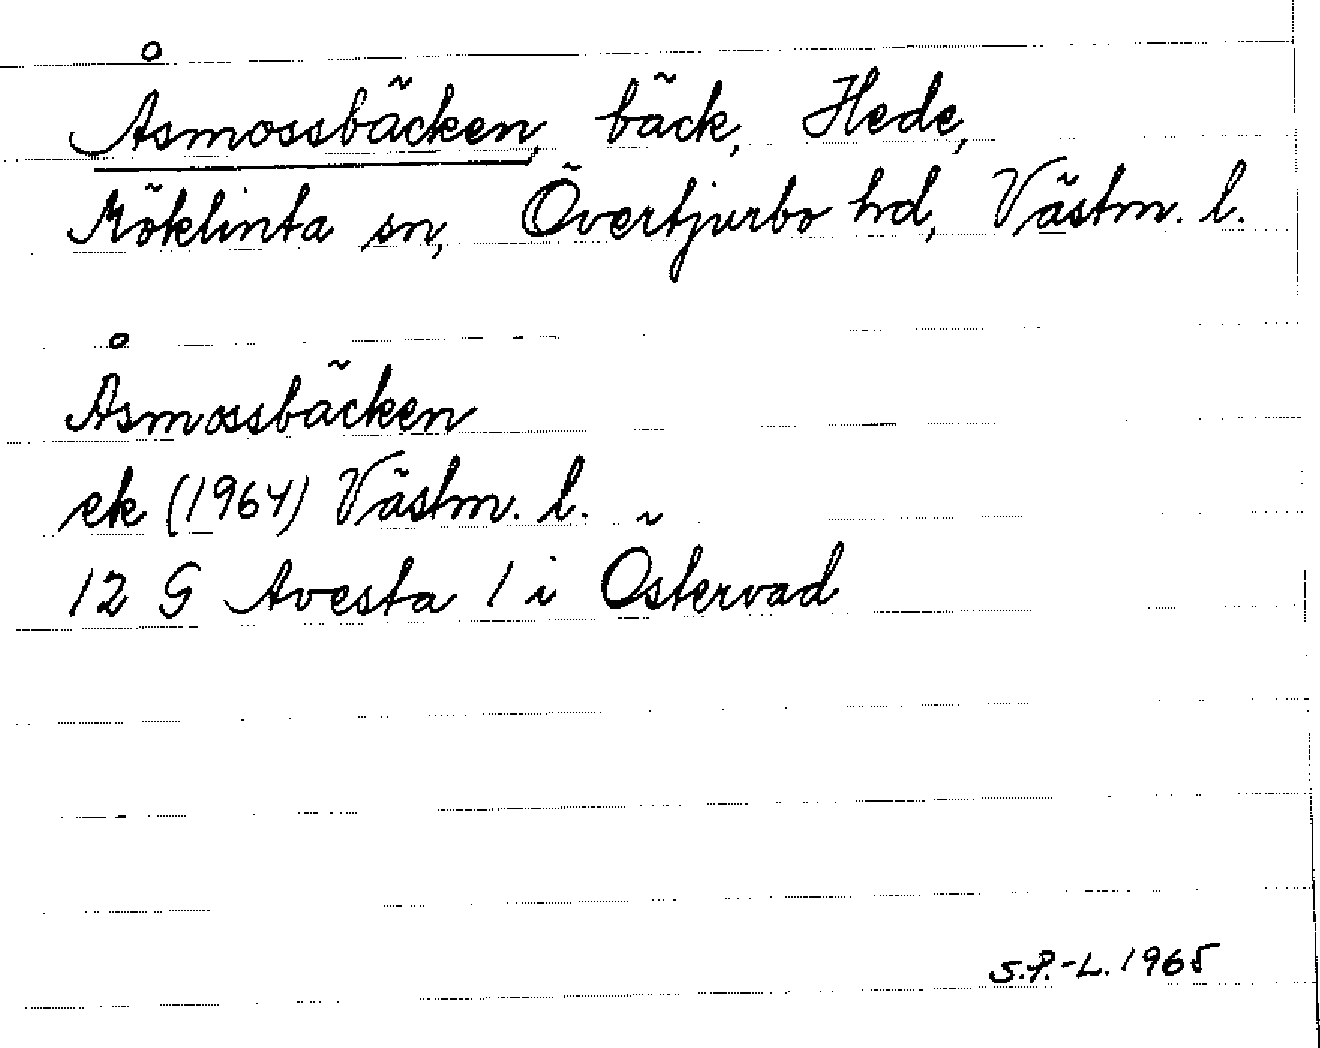 Åsmossbäcken, bäck, Hede,
Möklinta sn, Övertjurbo hd, Västm. l.
Åsmossbäcken
ek (1964) Västm. l.
12 G Avesta 1 i Östervad
S.P.-L. 1965